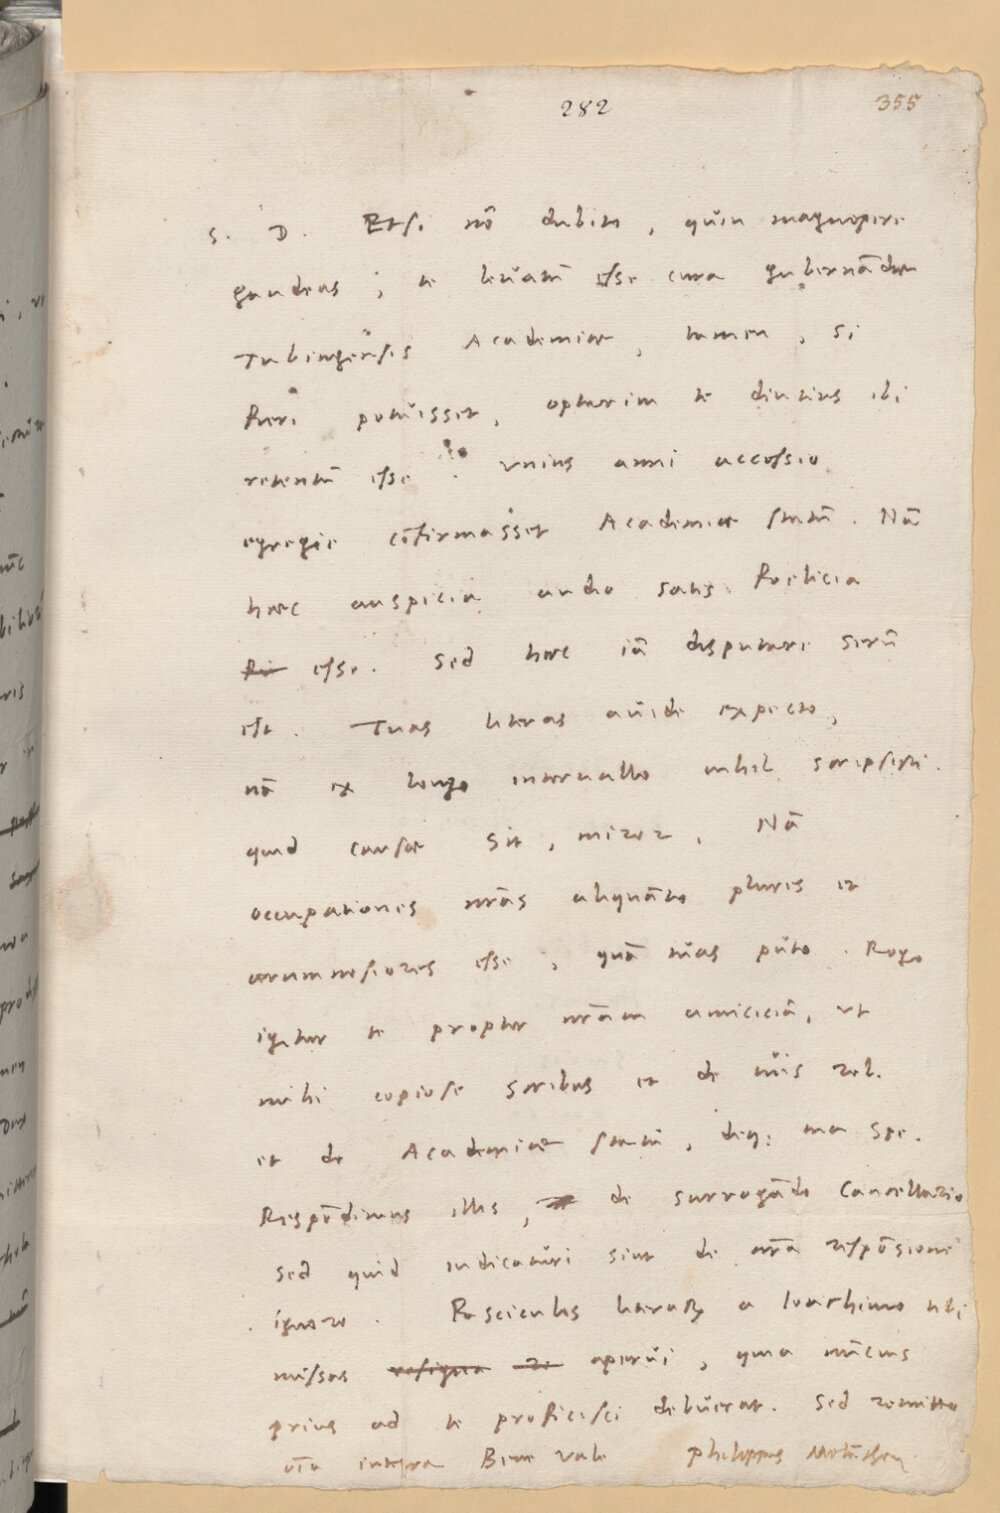 282 355
S. D. Etsi nō dubito, quin magnopere
gaudeas, te levatū esse cura gubernādae
Tubingensis Academiae, tamen, si
fieri potuisset, optarim te diutius ibi
retentū esse. Vnius anni accessio
egregie cōfirmasset Academiae statū. Nā
haec auspicia audio satis foelicia
esse. Sed haec iā disputare serū
est. Tuas literas avide expecto,
nā ex longo intervallo nihil scripsisti.
quid causae sit, miror. Nā
occupationes nrās aliquāto plures et
aerumnosiores esse, quā tuas puto. Rogo
igitur te propter nrām amiciciā, ut
mihi copiose scribas et de tuis reb.
et de Academiae statu, deq; tua spe.
Respōdimus illis, de surrogādo Cancellario
sed quid iudicaturi sint de nrā respōsione
ignoro. Fasciculos literarꝝ a Ioachimo tibi
missos resigna re aperui, quia nūcius
prius ad te proficisci debuerat. Sed remitto
oīa integra Bene vale philippus Melāthon